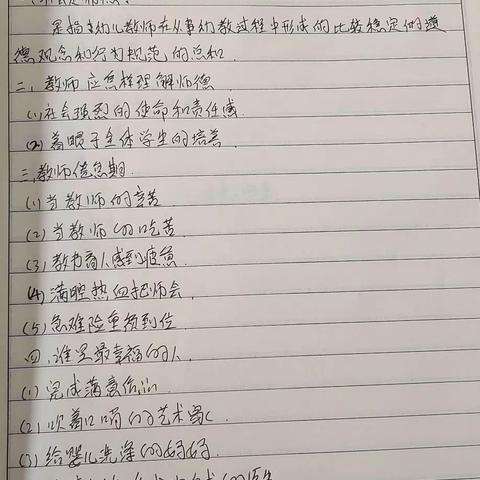 是指幼儿教师在从事幼教过程中形成的比较稳定的道
德观念和行为规范的总和.
二、教师应怎样理解师德
(1)社会强烈的使命和责任感
(2)着眼于全体学生的培养
三、教师倦怠期.
(1)当教师的辛苦
(2)当教师的吃苦
(3)教书育人感到疲惫
(4)满腔热血把师会.
(5)急难险重须到位
四.谁是最幸福的人
(1)完成满意作品
(2)吹着口哨的艺术家
(3)给婴儿洗澡的妈妈